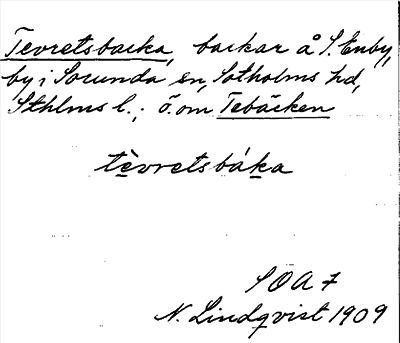 Tevretsbacka, backar å S. Enby,
by i Sorunda sn, Sotholms hd,
Sthlms l.; ö om Tebäcken
tèvretsbáka
SOA 7
N. Lindqvist 1909